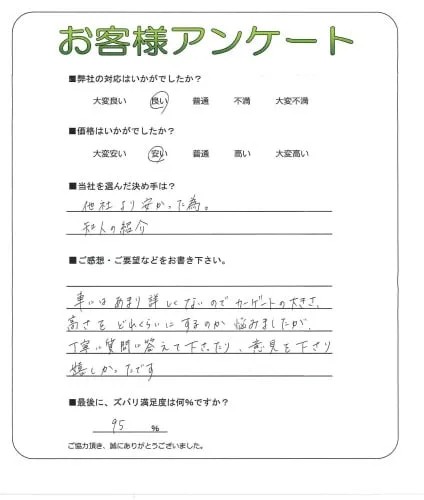 お客様アンケート
■弊社の対応はいかがでしたか?
大変良い 良い 普通 不満 大変不満
■価格はいかがでしたか?
大変安い 安い 普通 高い 大変高い
■当社を選んだ決め手は?
他社より安かった為。
知人の紹介
■ご感想・ご要望などをお書き下さい。
車にはあまり詳しくないのでカーゲートの大きさ、
高さをどれくらいにするのか悩みましたが、
丁寧に質問に答えて下さったり、意見を下さり
嬉しかったです
■最後に、ズバリ満足度は何%ですか?
95 %
ご協力頂き、誠にありがとうございました。